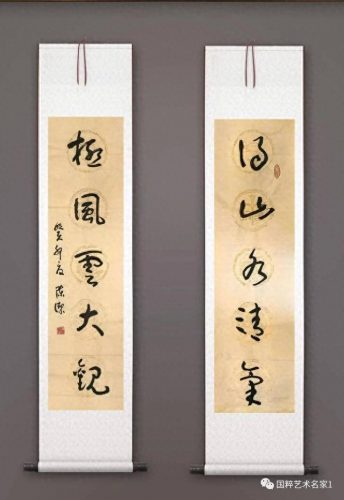 得山水清氣
極風雲大觀
癸卯夏
国粹艺术名家1